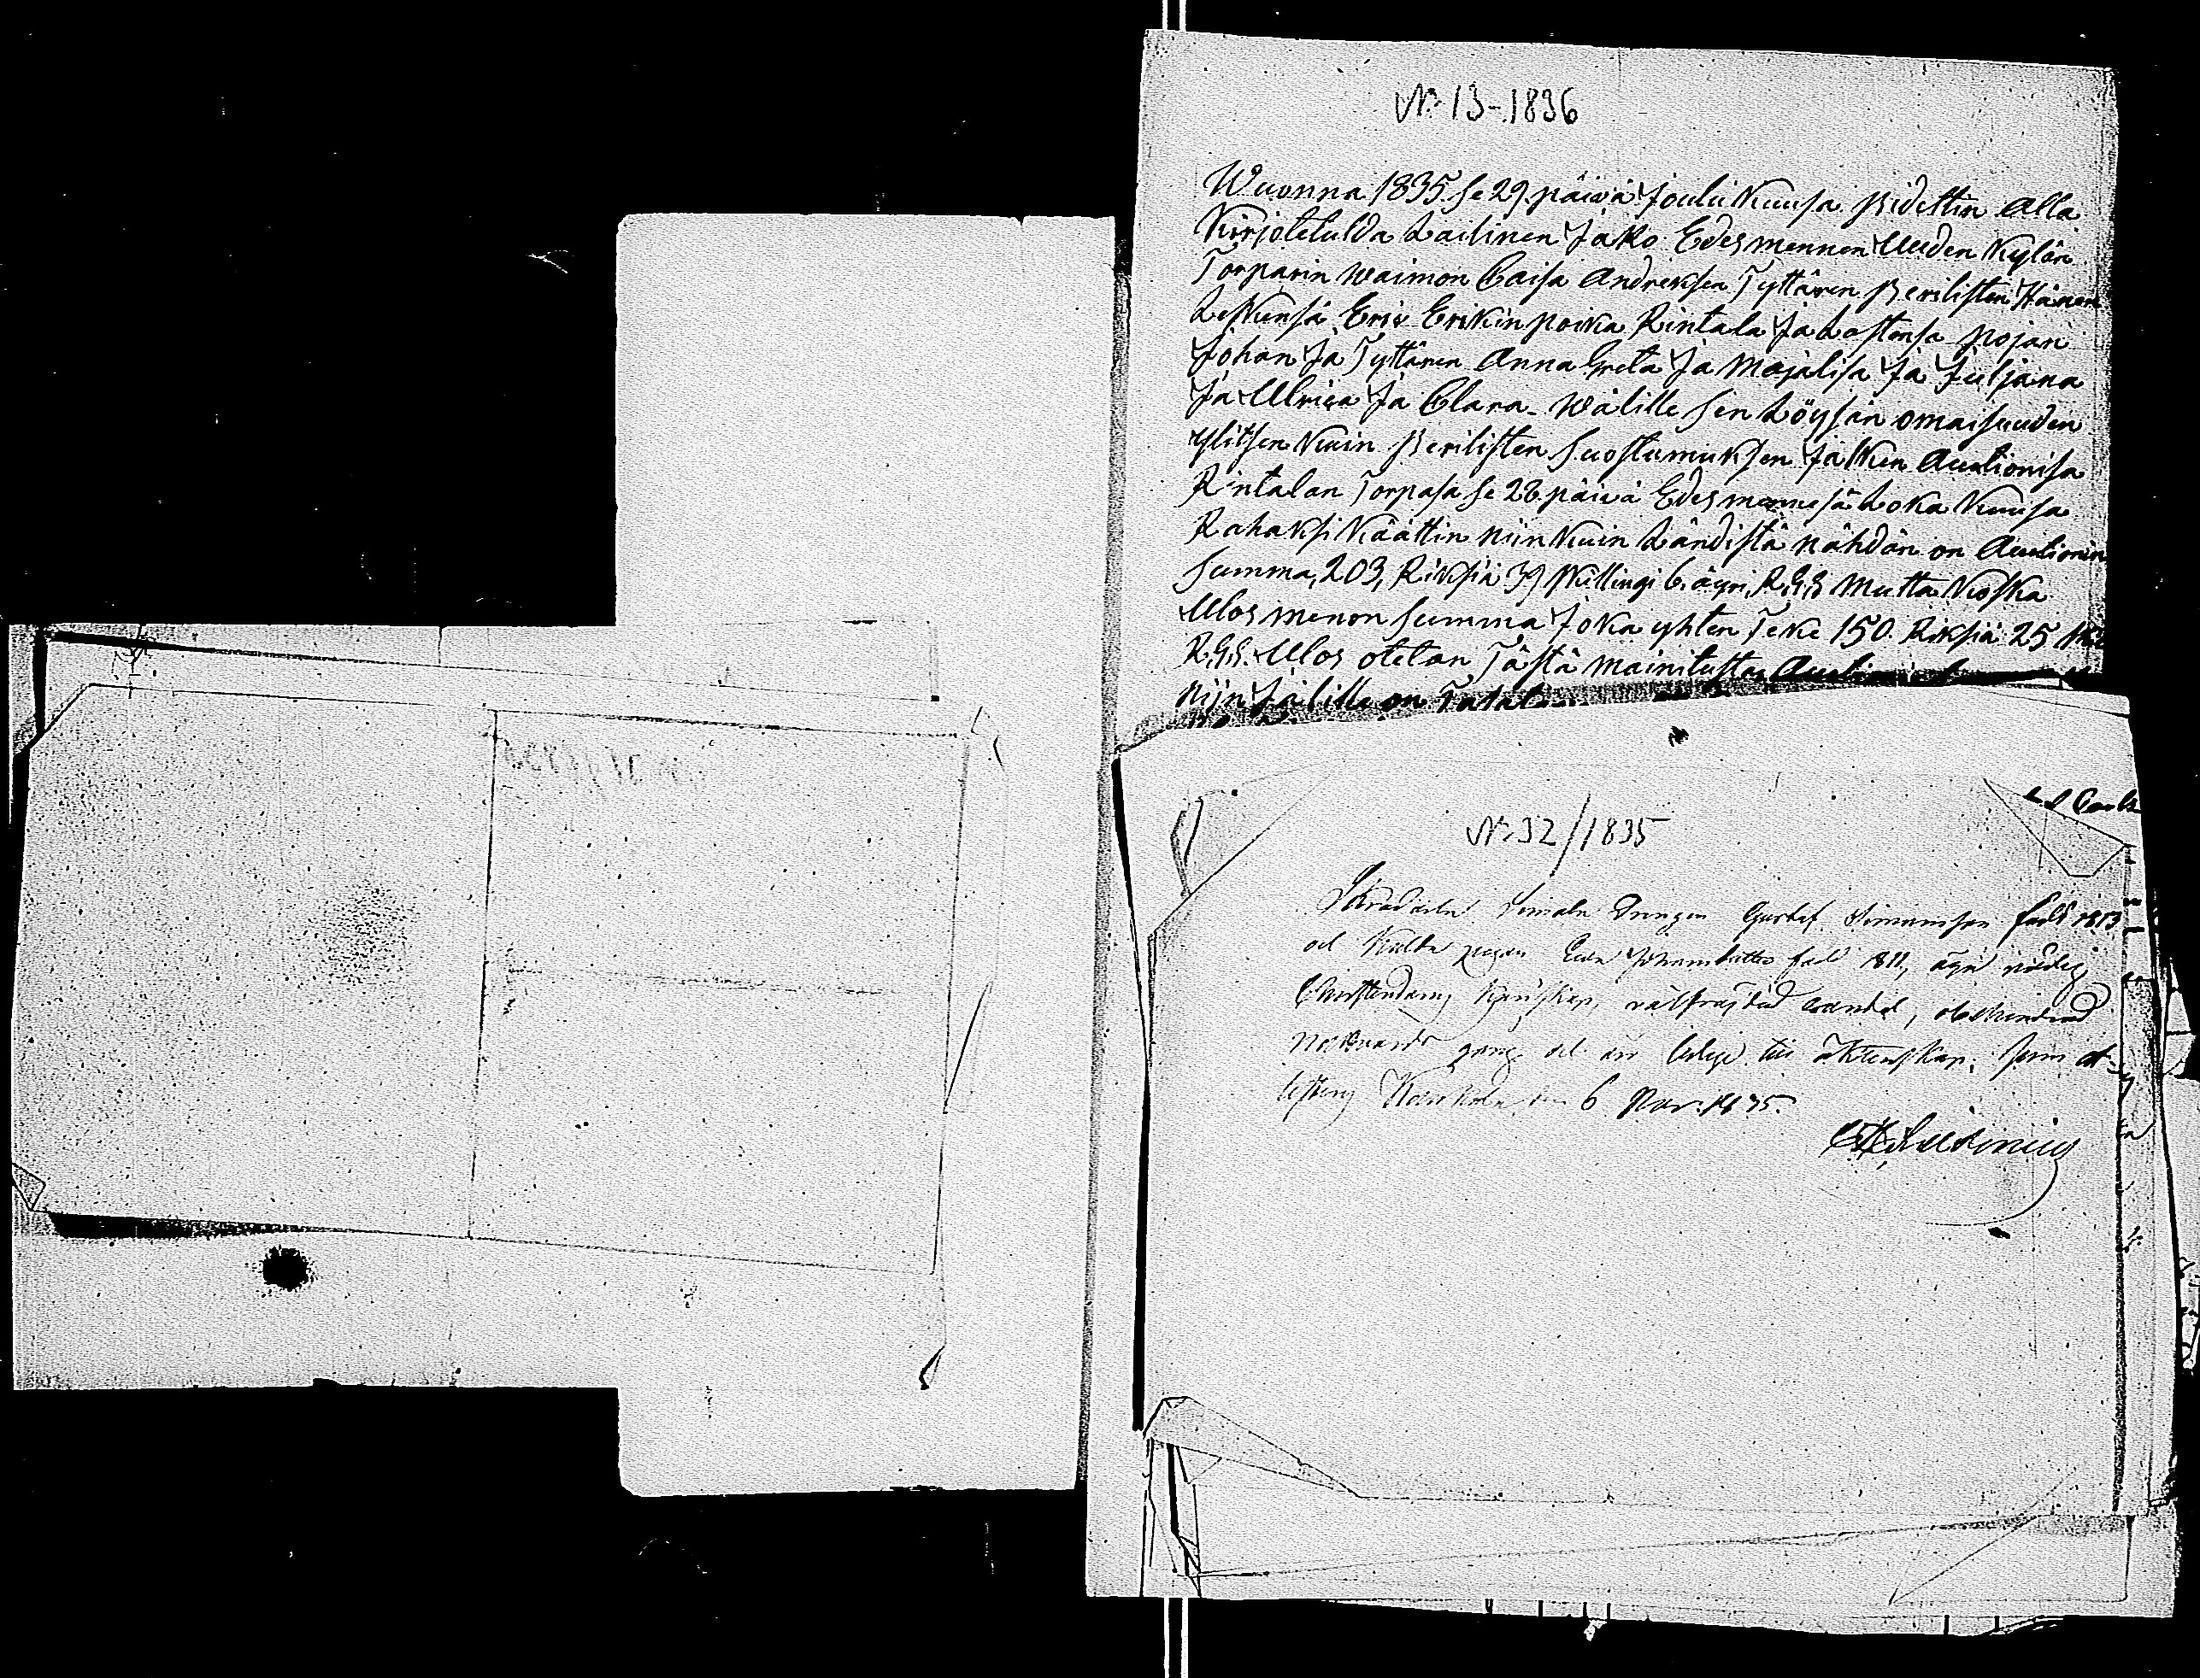 № 13-1836
Wuonna 1835 se 29 päivä Joulu Kuusa pidettin alla
Kirjotetulda Lailinen Jako Edesmennen Uuden Kylän
Torparin waimon Caisa Andreksen Tyttären perilisten Hänen
Leskensä Eric Erikin poika Rintala Ja Lastensa pojan
Johan Ja Tyttären Anna Greta Ja Majalisa Ja Juljana
Ja Ulrica Ja Clara Wälille sen Löysän omaisuuden
ylitsen Kuin perilisten suostumuksen Jälken Auctionisa
Rintalan Torpasa se 28 päivä Edesmennesä Loka Kuusa
Rahaksi Käättin niin Kuin Ländistä nähdän on Auctionin
summa, 203, Riksiä 39 Killingi 6 äyri R.G.S mutta Koska
Ulos menon summa Joka yhten Teke 150 Riksiä 25
R.G.S. Ulos otetan Tästä mainitusta
niin Jä on
№ 32/1835
Drengen Gustaf Simonsson född 1813
och pigan Johansdotter född 1811, äga nödig
Christendoms Kunskap, välfräjdad vandel, obehindrad
Nattvards gång och äro ledige till äktenskap; som at-
testeras den 6 Nov. 1835.